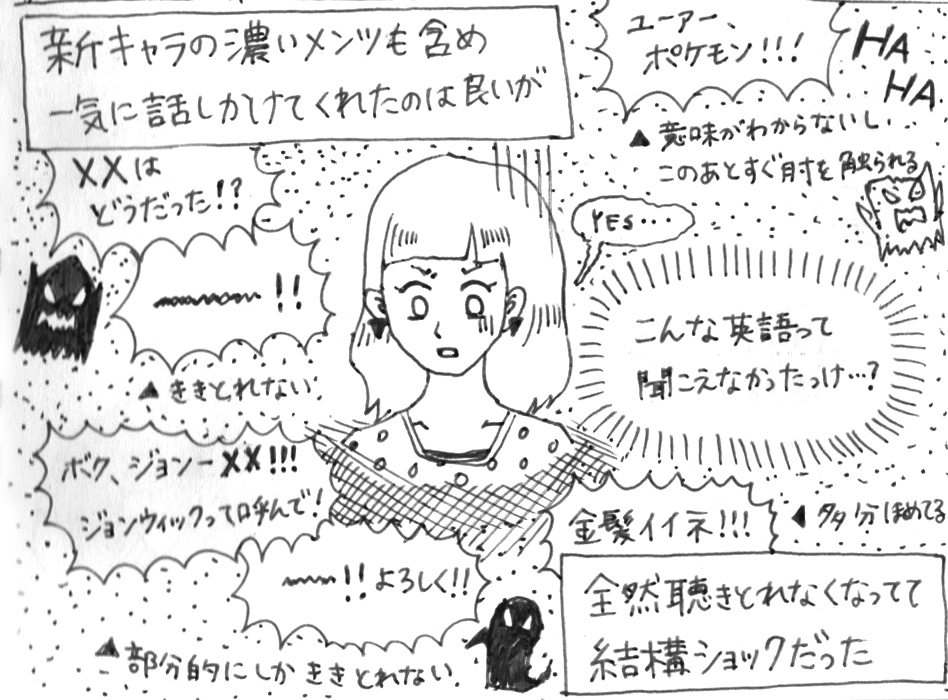 新キャラの濃いメンツも含め
一気に話しかけてくれたのは良いが
ユーアー、
ポケモン!!!
HA
HA
▲意味がわからないし
このあとすぐ肘を触られる
XXは
どうだった!?
YES...
〰〰!!
▲ききとれない.
こんな英語って
聞こえなかったっけ…?
ボク、ジョン–XX!!!
ジョンウィックって呼んで!
金髪イイネ!!!
◀多分ほめてる
〰!!よろしく!!
▲部分的にしかききとれない.
全然聴きとれなくなってて
結構ショックだった